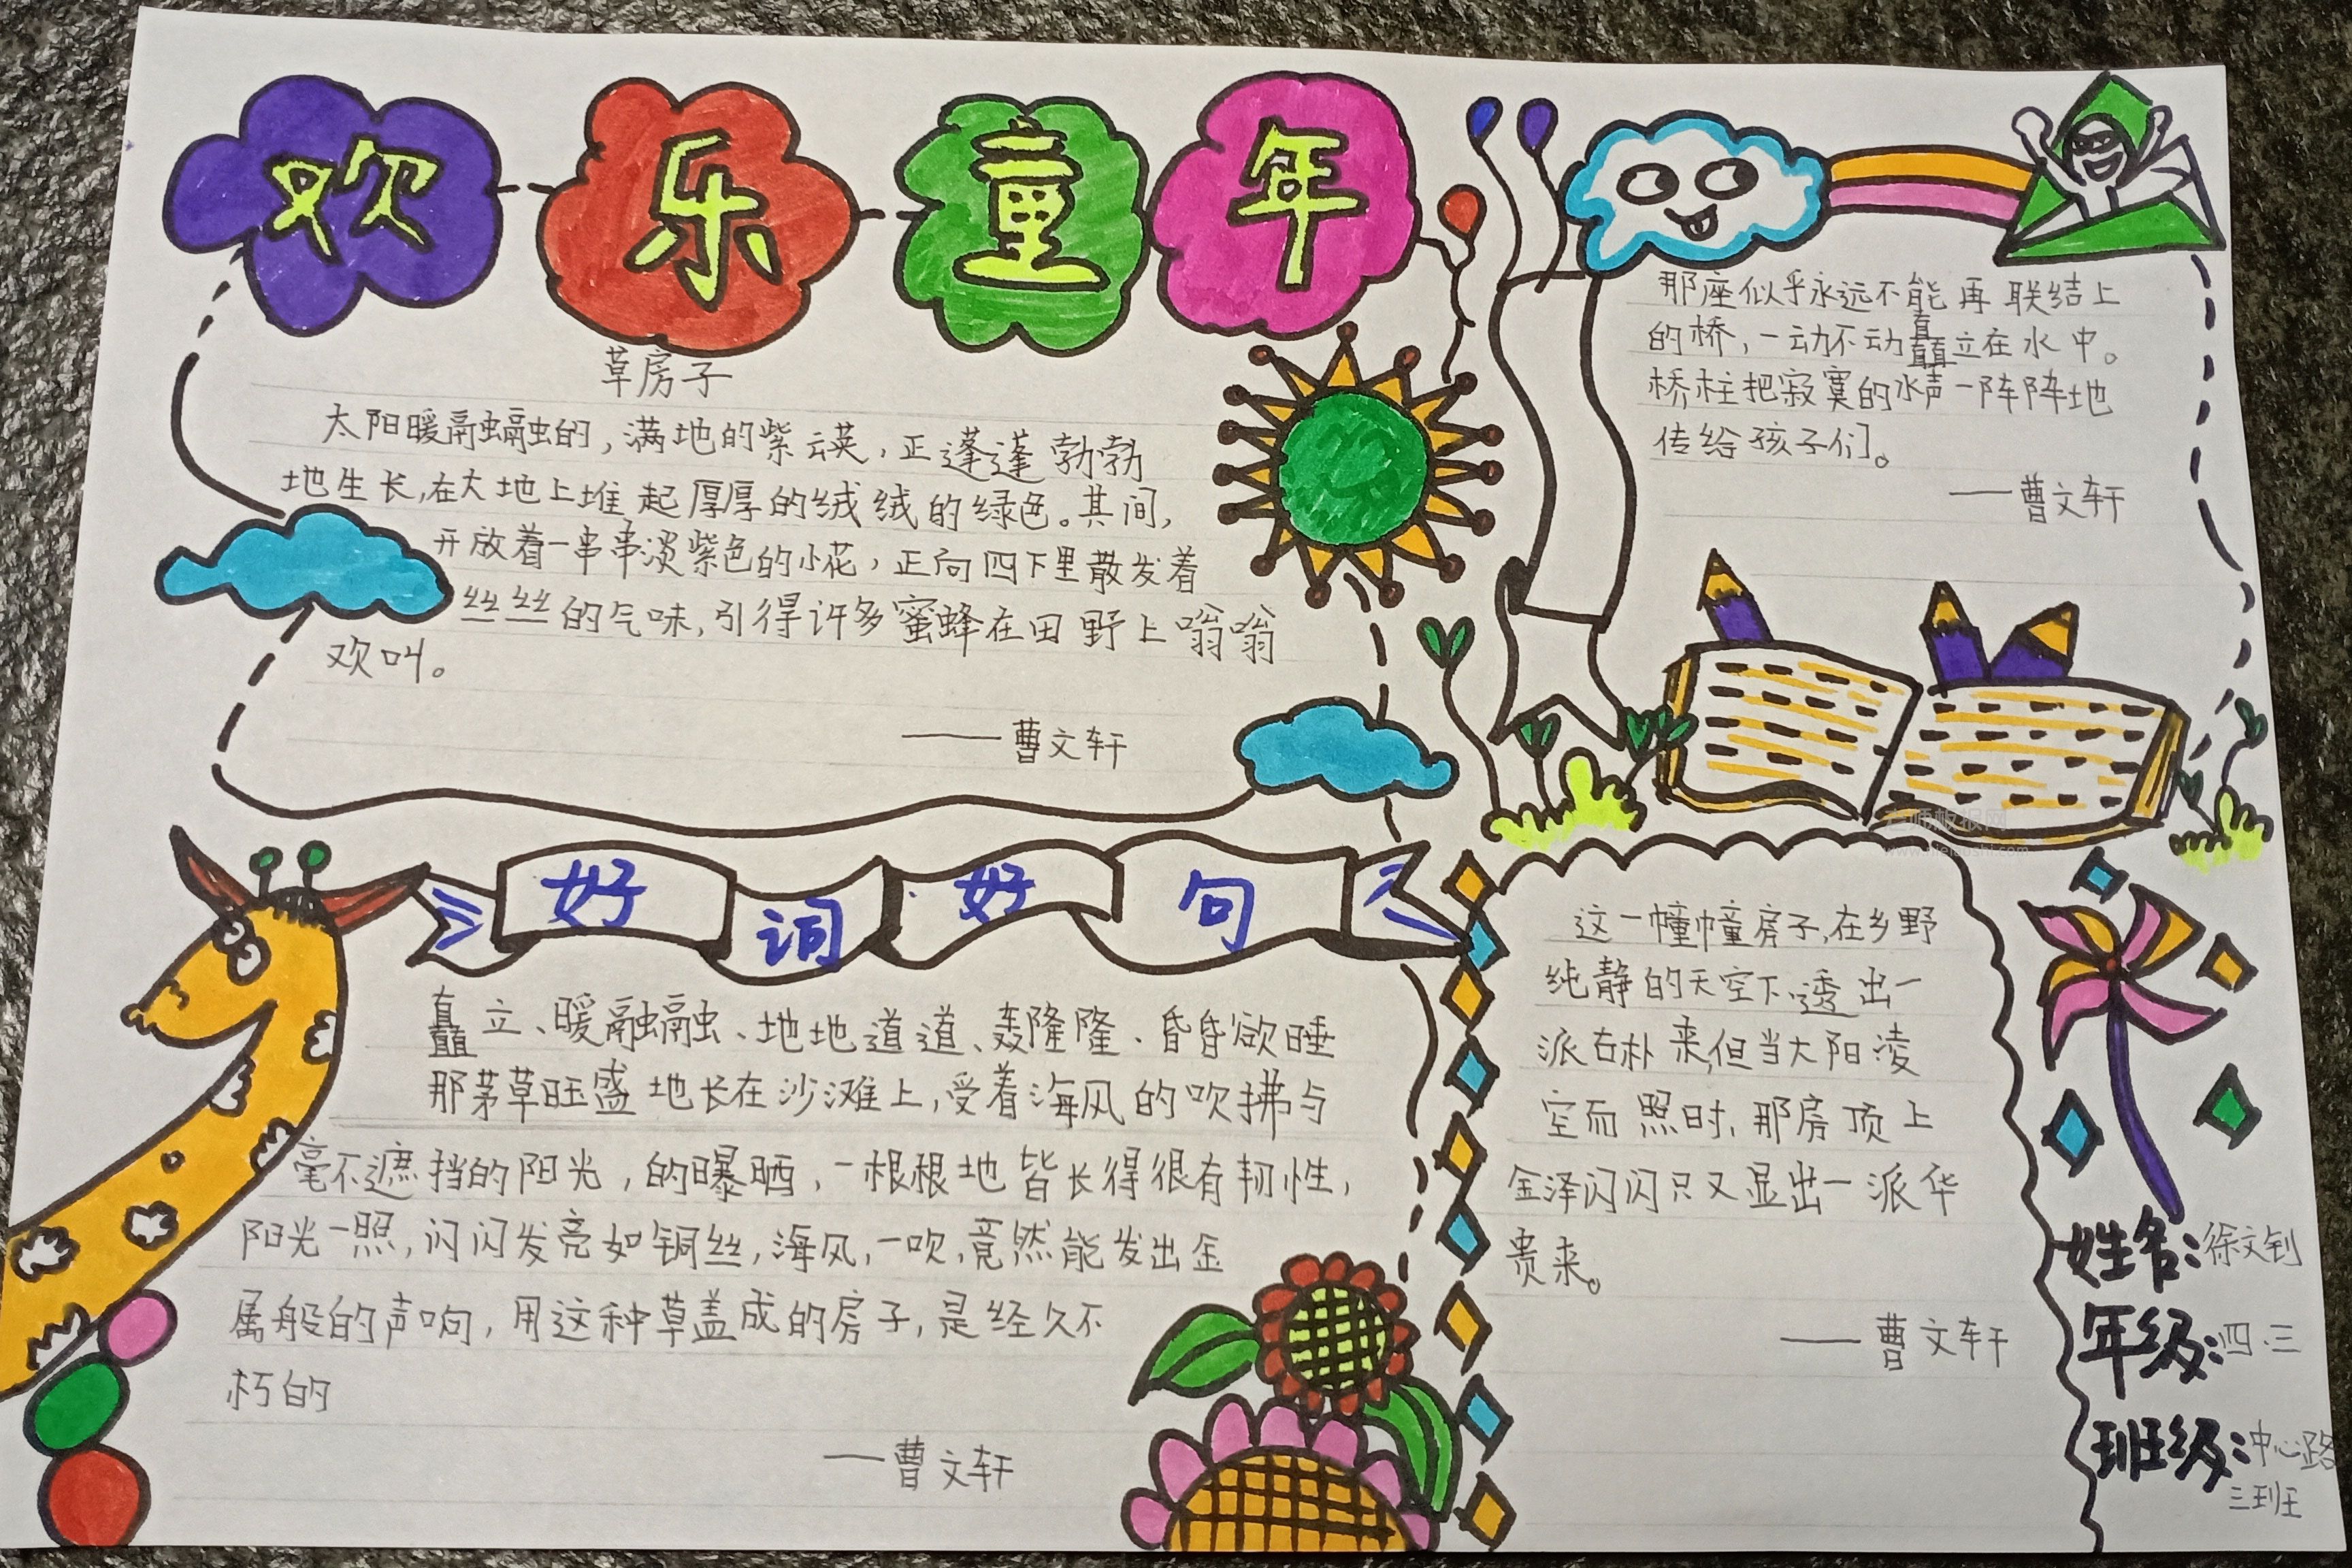 欢乐童年
草房子
太阳暖融融的,满地的紫云英,正蓬蓬勃勃
地生长,在大地上堆起厚厚的绒绒的绿色。其间,
开放着一串串淡紫色的小花,正向四下里散发着
丝丝的气味,引得许多蜜蜂在田野上嗡嗡
欢叫。
——曹文轩
那座似乎永远不能再联结上
的桥,一动不动矗立在水中。
桥柱把寂寞的水声一阵阵地
传给孩子们。
——曹文轩
好词好句
矗立、暖融融、地地道道、轰隆隆、昏昏欲睡
那茅草旺盛地长在沙滩上,受着海风的吹拂与
毫不遮挡的阳光,的曝晒,一根根地皆长得很有韧性,
阳光一照,闪闪发亮如铜丝,海风,一吹,竟然能发出金
属般的声响,用这种草盖成的房子,是经久不
朽的
——曹文轩
这一幢幢房子,在乡野
纯静的天空下,透出一
派古朴来,但当太阳凌
空而照时,那房顶上
金泽闪闪只又显出一派华
贵来。
——曹文轩
姓名:徐文钊
年级:四.三
班级:中心路
三班
老师板报网